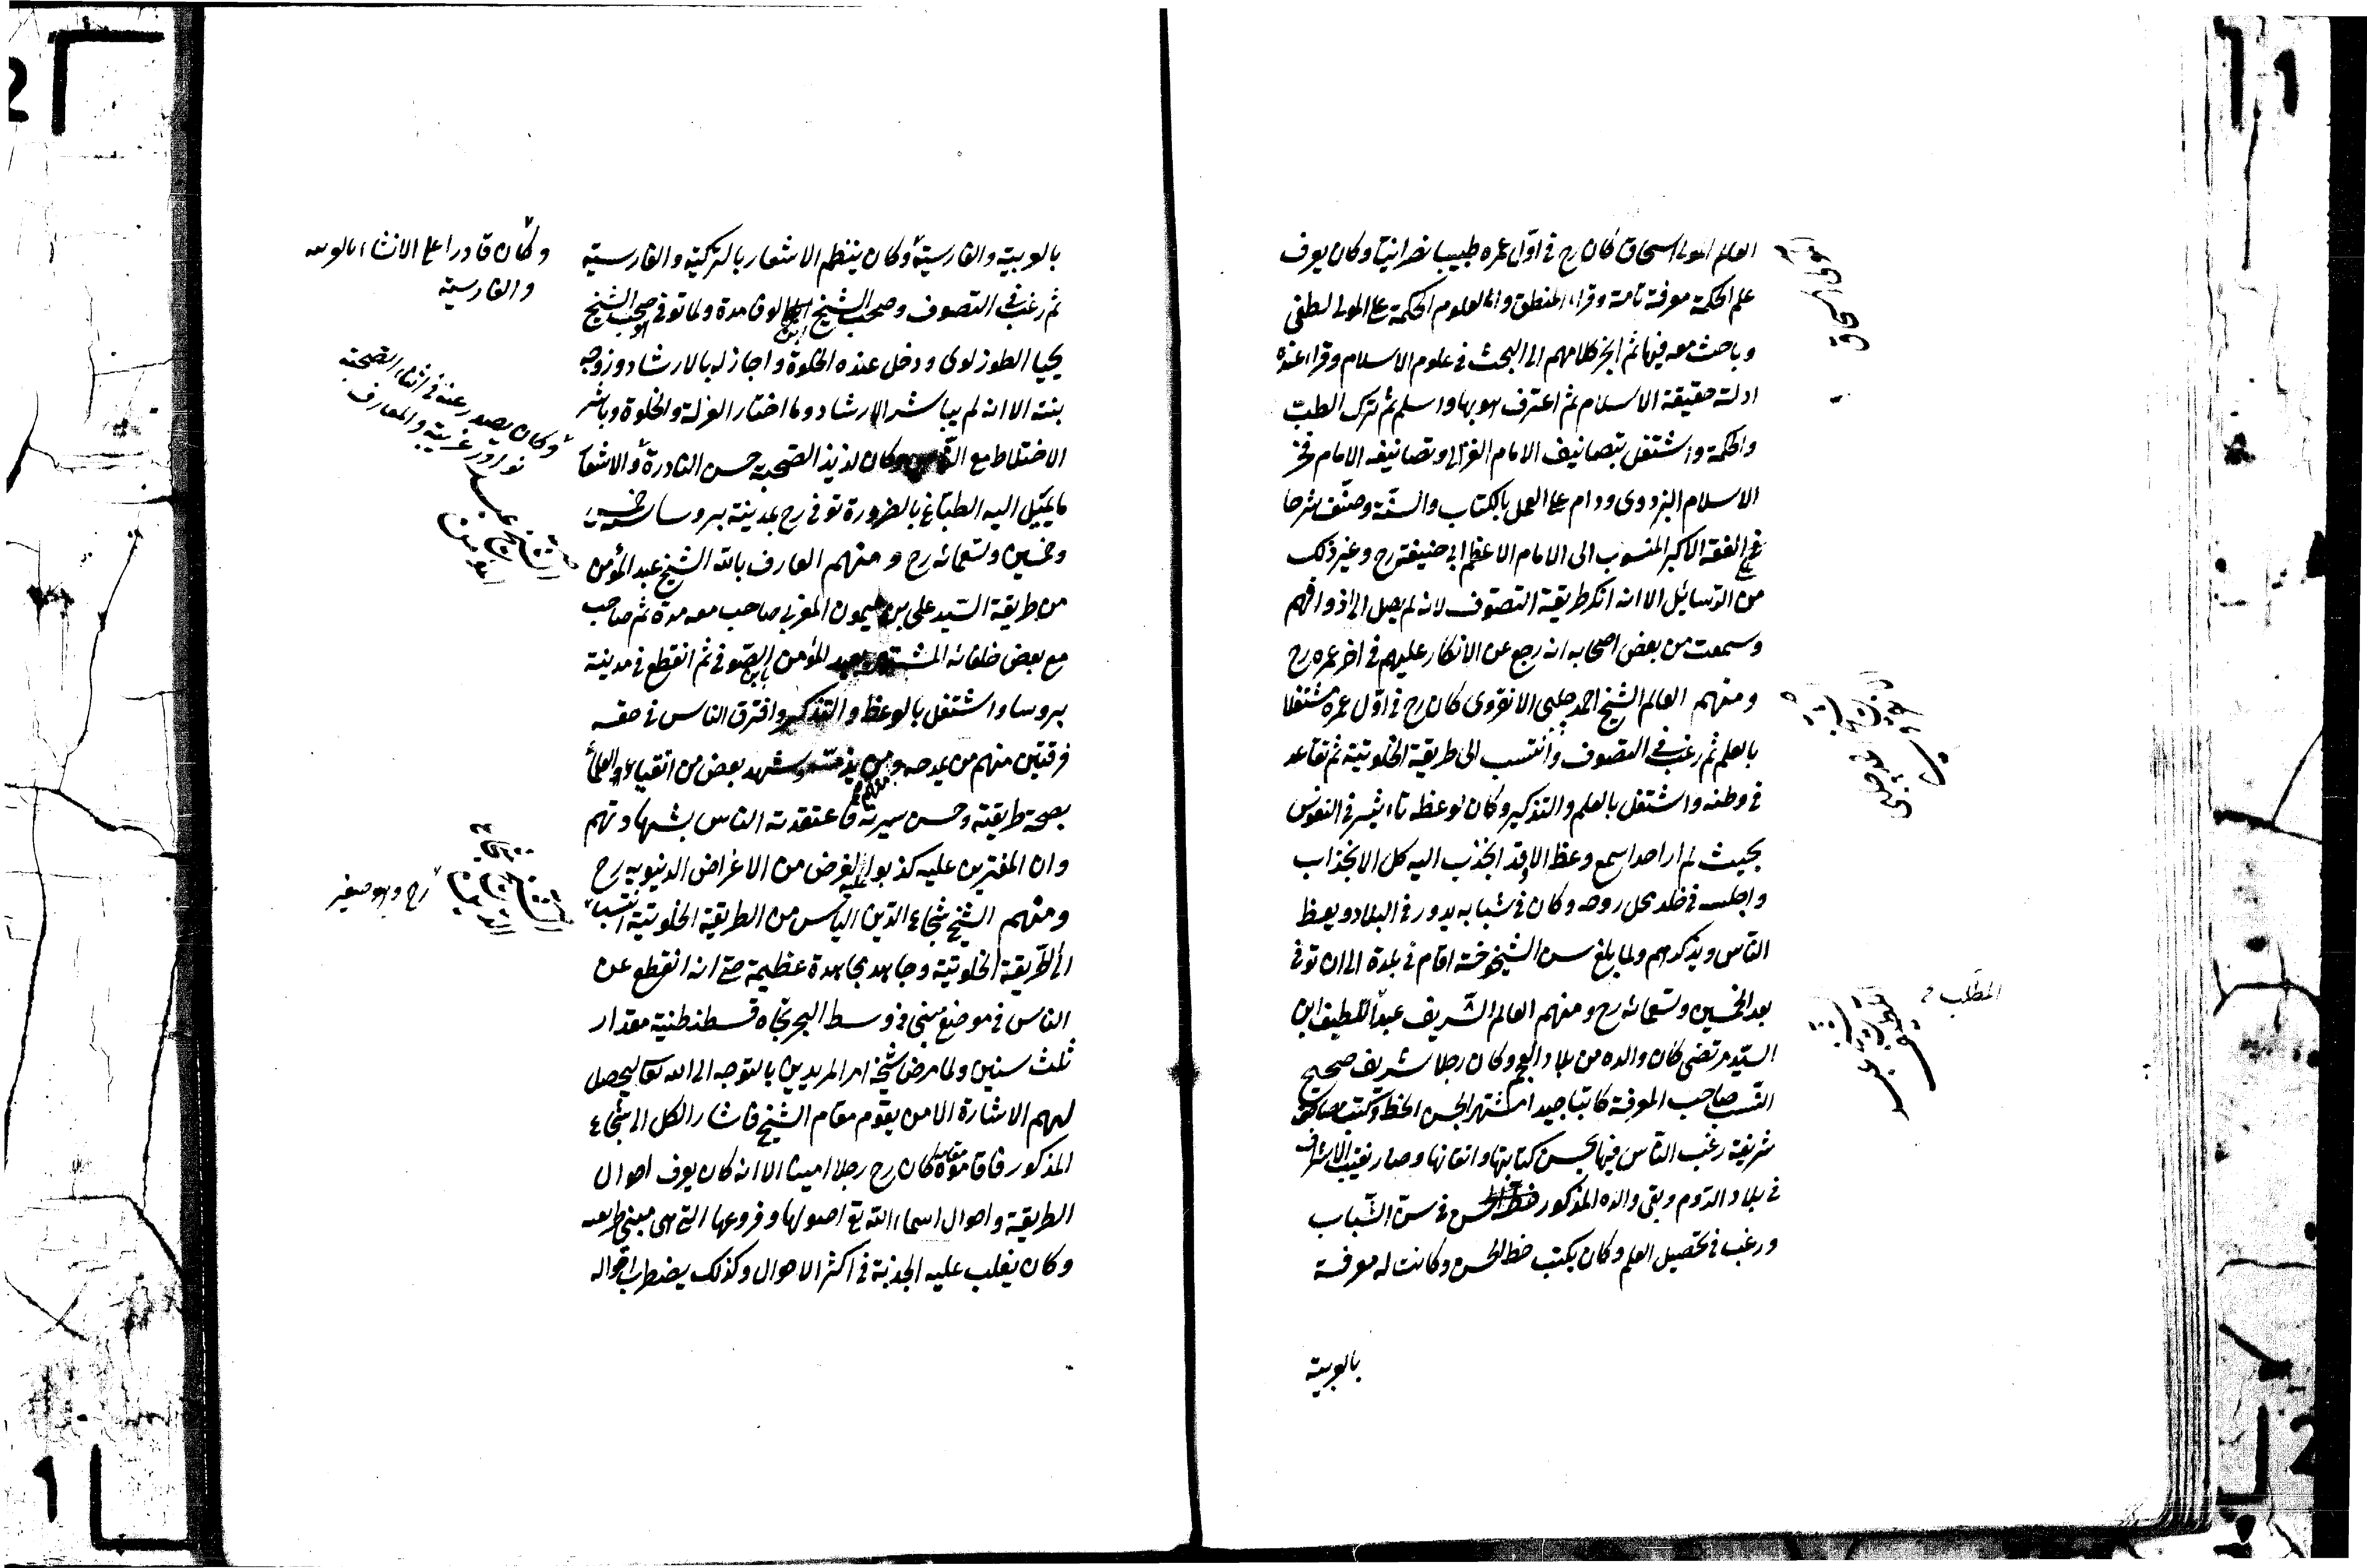 العالم المولى اسحاق كان رح فى اوّل عمره طبيبا نصرانيا وكان يعرف
علم الحكمة معرفة تامة وقراء المنطق والعلوم الحكمة على المولى لطفى
وباحث معه فيها ثم انجر كلامهم الى البحث فى علوم الاسلام وقراء عنده
ادلة حقيقة الاسلام ثم اعترف هو بها واسلم ثم ترك الطبّ
والحكمة واشتغل بتصانيف الامام الغزالى وتصانيف الامام فخر
الاسلام البزدوى ودام على العمل بالكتاب والسنّة وصنّف شرحا
على الفقه الاكبر المنسوب الى الامام الاعظم ابى حنيفة رح وغير ذلك
من الرّسائيل الا انه انكر طريقة التصوّف لانه لم يصل الى اذواقهم
وسمعت من بعض اصحابه انه رجع عن الانكار عليهم فى اخر عمره رح
ومنهم العالم الشيخ احمد چلبى الانقروى كان رح فى اوّل عمره مشتغلا
بالعلم ثم رغب فى التصوف وانتسب الى طريقة الخلوتية ثم تقاعد
فى وطنه واشتغل بالعلم والتذكير وكان لوعظه تاءثير فى النفوس
بحيث لم ار احدا سمع وعظه الا وقد انجذب اليه كل الانجذاب
واجلسه فى خلده محل روحه وكان فى شبابه يدور فى البلاد ويعظ
النّاس ويذكرهم ولما بلغ سن الشيخوخة اقام فى بلدة الى ان توفى
بعد الخمسين وتسعمائه رح ومنهم العالم الشّريف عبد اللطيف ابن
السّيد مرتضى كان والده من بلاد العجم وكان رجلا شريف صحيح
النّسب صاحب المعرفة كاتبا جيدا اشتهر بحسن الخط وكتب مصاحف
شريفة رغب النّاس فيها لحسن كتابتها واتقانها وصار نقيب الاشراف
فى بلاد الرّوم وبقى والده المذكور فى سنّ الشّباب
ورغب فى تحصيل العلم وكان يكتب خط الحسن وكانت له معرفة
بالعربية
المطلب
بالعربية والفارسية وكان ينظم الاشعار بالتركية والفارسية
وكان قادرا على الانشاء بالعربية
والفارسية
ثم رغب فى التصوف وصحب الشيخ مدة ولما توفى صحب الشيخ
يحيا الطوزلوى ودخل عنده الخلوة واجاز له بالارشاد وزوجه
بنته الا انه لم يباشر الارشاد ولما اختار العزلة والخلوة وباشر
الاختلاط مع النّاس وكان لذيذ الصحبة حسن النادرة والاشعار
وكان يصدر عنه فى اثناء الصحبة
نوادر غريبة والمعارف
ما يميّل اليه الطبّاع بالضرورة توفى رح بمدينة بروسا سنة خمس
وخمسين وتسعمائه رح ومنهم العارف بالله الشيخ عبد المؤمن
من طريقة السّيد على بن ميمون المغربى صاحب معه مدة ثم صاحب
مع بعض خلفائه المشتهر بعبد المؤمن الصّوفى ثم انقطع فى مدينة
بروسا واشتغل بالوعظ والتذكير وافترق الناس فى حقه
فرقتين منهم من يمدحه ومن يذمّه وشهد بعض من اتقياء العلما
بصحة طريقته وحسن سيرته فاعتقدته الناس بشهادتهم
وان المفترين عليه كذبوا لغرض من الاغراض الدنيوية رح
ومنهم الشيخ شجاع الدّين الياس من الطريقة الخلوتية انتسب
رح وهو صغير
الى الطّريقة الخلوتية وجاهد مجاهدة عظيمة حتى انه انقطع عن
الناس فى موضع مبنى فى وسط البحر تجاه قسطنطنية مقدار
ثلث سنين ولما مرض شيخه امر المريدين بالتوجه الى الله تعالى ليحصل
لهم الاشارة الا من يقوم مقام الشيخ فاشار الكل الى شجاع
المذكور فاقاموه مقامه كان رح رجلا اميا الا انه كان يعرف احوال
الطريقة واحوال اسماء الله تع اصولها وفروعها التى هى مبنى طريقه
وكان يغلب عليه الجذبة فى اكثر الاحوال وكذلك يضطرب اقواله